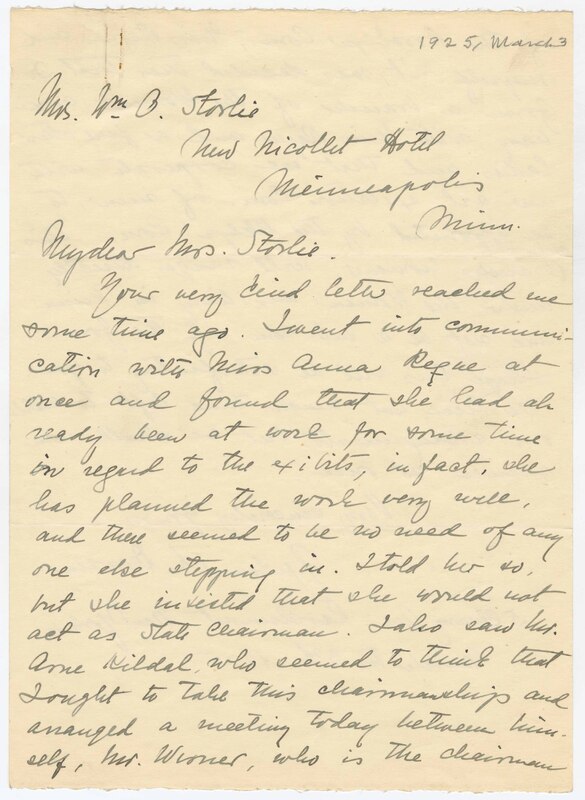 1925, March 3
Mrs. Wm O. Storlie
New Nicollet Hotel
Minneapolis
Minn.
My dear Mrs. Storlie.
Your very kind letter reached me
some time ago. I went into communi-
cation with Miss Anna Reque at
once and found that she had al-
ready been at work for some time
in regard to the exibits, in fact, she
has planned the work very well,
and there seemed to be no need of any
one else stepping in. I told her so,
but she insisted that she would not
act as State Chairman. I also saw Mr.
Arne Kildal, who seemed to think that
I ought to take this chairmanships and
arranged a meeting today between him-
self, Mr. Werner, who is the chairman